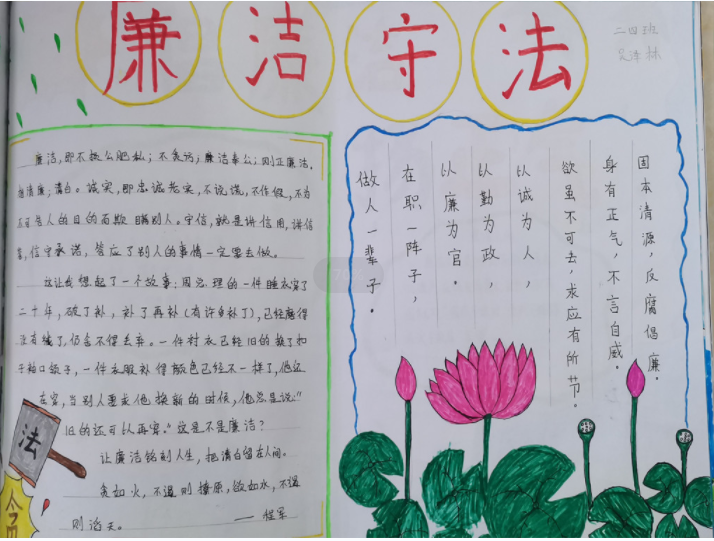 廉洁守法
二四班
廉洁,即不损公肥私;不贪污;廉洁奉公;刚正廉洁,
清廉;清白。诚实,即忠诚老实,不说谎,不作假,不为
不可告人的目的而欺瞒别人。守信,就是讲信用,讲信
誉,信守承诺,答应了别人的事情一定要去做。
这让我想起了一个故事:周总理的一件睡衣穿了
二十年,破了补,补了再补(有许多补丁),已经磨得
没有绒了,仍舍不得丢弃。一件衬衣已经旧的换了扣
子袖口领子,一件衣服补得颜色已经不一样了,他还
在穿,当别人要求他换新的时候,他总是说:“
旧的还可以再穿。”这是不是廉洁?
让廉洁铭刻人生,把清白留在人间。
贪如火,不遏则燎原,欲如水,不遏
则滔天。
——程军
法
固本清源,反腐倡廉。
身有正气,不言自威。
欲虽不可去,求应有所节。
以诚为人,
以勤为政,
以廉为官。
在职一阵子,
做人一辈子。